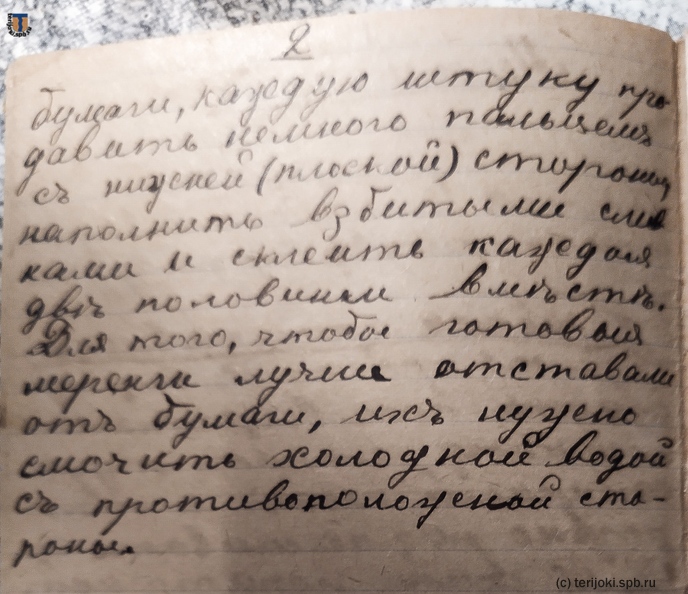 terijoki.spb.ru
2
бумаги, каждую штуку про-
давить немного пальцемъ
съ нижней (плоской) стороны
наполнить взбитыми слив
ками и склеить каждыя
двѣ половинки вмѣстѣ.
Для того, чтобы готовыя
меренги лучше отставали
отъ бумаги, ихъ нужно
смочить холодной водой
съ противоположной сто-
роны.
(c) terijoki.spb.ru